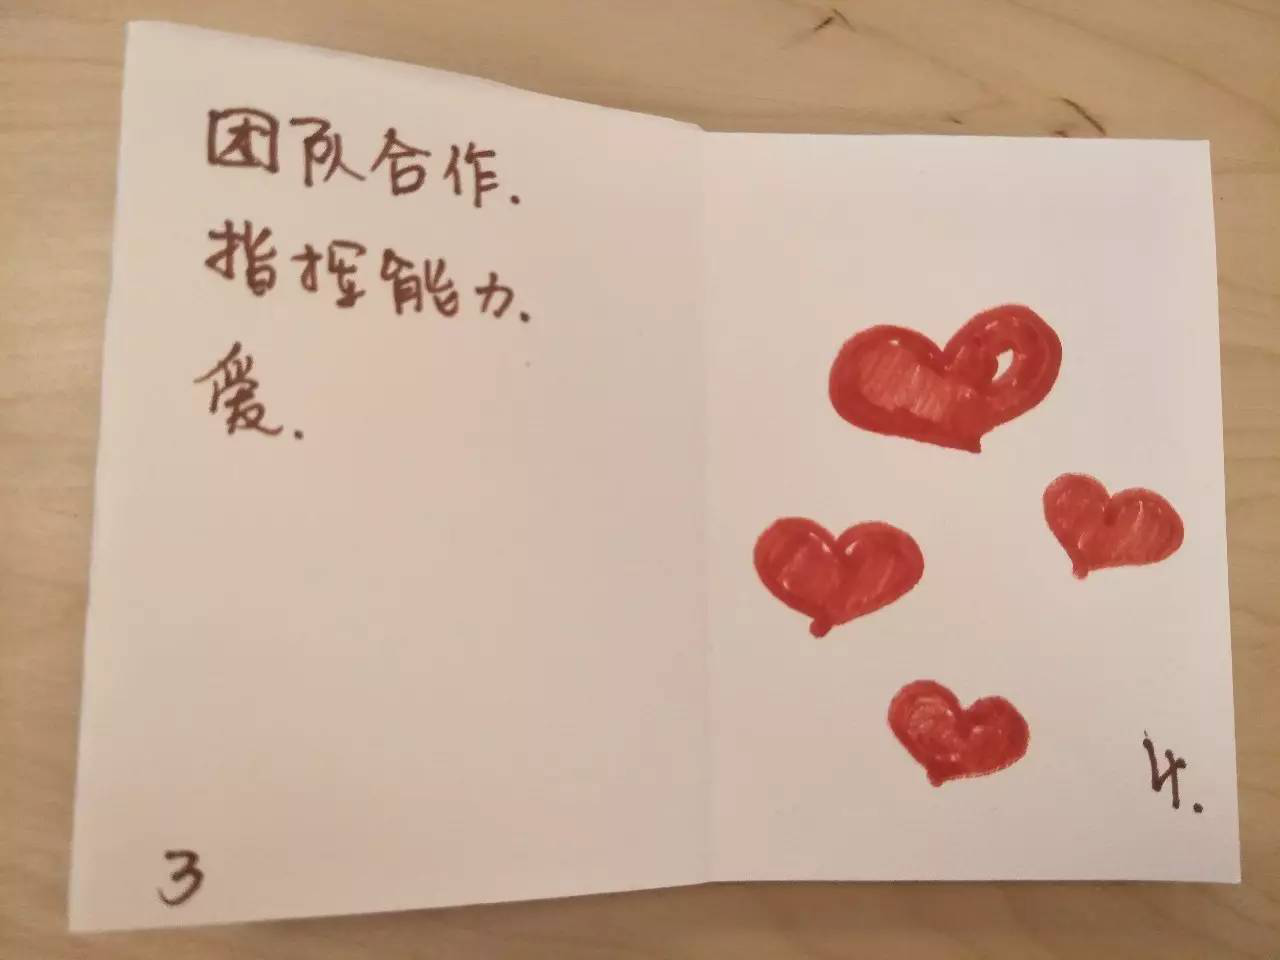 团队合作.
指挥能力.
爱.
3
4.